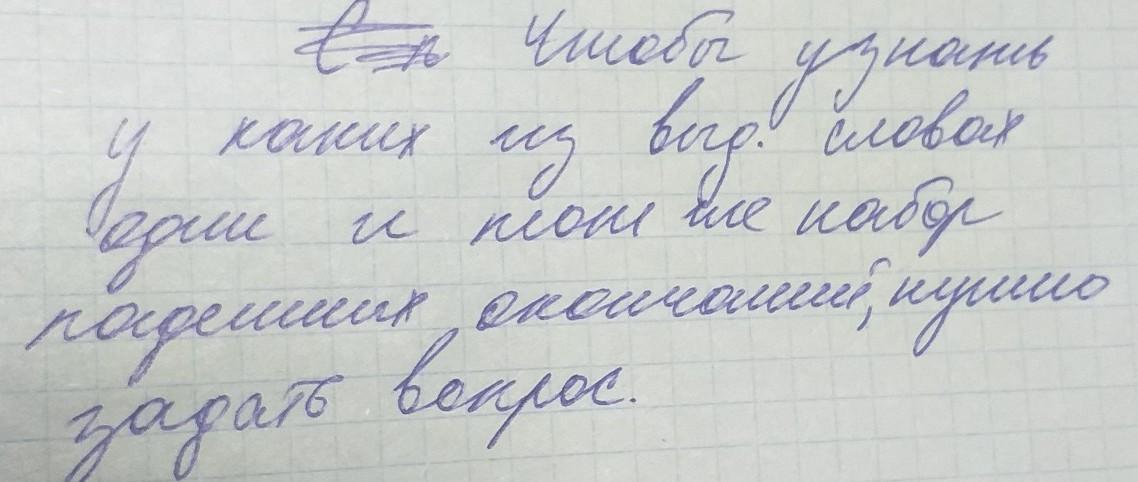 Чтобы узнать
у каких из выд. словах
один и тот же набор
падежных окончаний, нужно
задать вопрос.